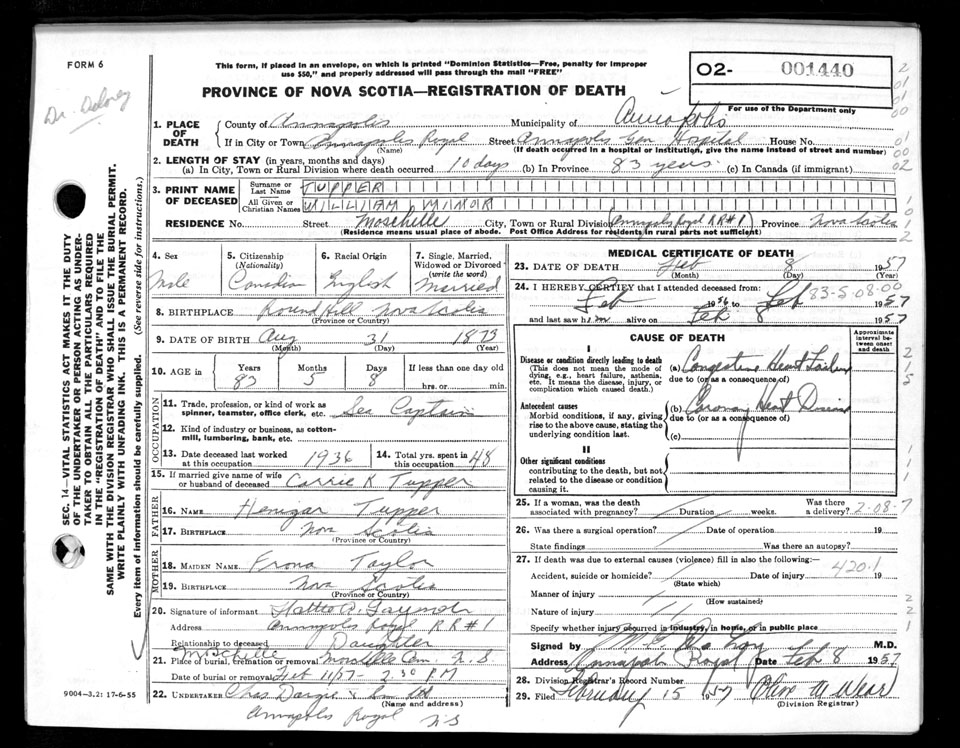 FORM 6
Dr. Deloney
This form, if placed in an envelope, on which is printed "Dominion Statistics—Free, penalty for improper
use $50," and properly addressed will pass through the mail "FREE"
O2- 001440
For use of the Department only
PROVINCE OF NOVA SCOTIA—REGISTRATION OF DEATH
1. PLACE OF DEATH County of Annapolis Municipality of Annapolis
If in City or Town Annapolis Royal Street Annapolis Gen Hospital House No.
(Name) (If death occurred in a hospital or institution, give the name instead of street and number)
2. LENGTH OF STAY (in years, months and days)
(a) In City, Town or Rural Division where death occurred 10 days (b) In Province 83 years (c) In Canada (if immigrant)
3. PRINT NAME OF DECEASED Surname or Last Name TUPPER
All Given or Christian Names WILLIAM MINOR
RESIDENCE No. Street Moschelle City, Town or Rural Division Annapolis Royal RR#1 Province Nova Scotia
(Residence means usual place of abode. Post Office Address for residents in rural parts not sufficient)
SEC. 14—VITAL STATISTICS ACT MAKES IT THE DUTY
OF THE UNDERTAKER OR PERSON ACTING AS UNDER-
TAKER TO OBTAIN ALL THE PARTICULARS REQUIRED
IN THE "REGISTRATION OF DEATH" AND TO FILE THE
SAME WITH THE DIVISION REGISTRAR WHO SHALL ISSUE THE BURIAL PERMIT.
WRITE PLAINLY WITH UNFADING INK. THIS IS A PERMANENT RECORD.
Every item of information should be carefully supplied. (See reverse side for instructions.)
4. Sex Male
5. Citizenship (Nationality) Canadian
6. Racial Origin English
7. Single, Married, Widowed or Divorced (write the word) Married
8. BIRTHPLACE Round Hill Nova Scotia
(Province or Country)
9. DATE OF BIRTH Aug 31 1873
(Month) (Day) (Year)
10. AGE in Years 83 Months 5 Days 8 If less than one day old
hrs. or min.
OCCUPATION
11. Trade, profession, or kind of work as
spinner, teamster, office clerk, etc. Sea Captain
12. Kind of industry or business, as cotton-
mill, lumbering, bank, etc.
13. Date deceased last worked at this occupation 1936
14. Total yrs. spent in this occupation 48
15. If married give name of wife
or husband of deceased Carrie K Tupper
FATHER
16. NAME Tupper
17. BIRTHPLACE Nova Scotia
(Province or Country)
MOTHER
18. MAIDEN NAME Taylor
19. BIRTHPLACE Nova Scotia
(Province or Country)
20. Signature of informant
Address Annapolis Royal RR#1
Relationship to deceased Daughter
Moschelle
21. Place of burial, cremation or removal Moschelle Cem. N.S.
Date of burial or removal Feb 11/57 - 2.30 PM
22. UNDERTAKER Chas Dargie & Son Ltd
(Name and address)
Annapolis Royal NS
9004-3.2: 17-6-55
MEDICAL CERTIFICATE OF DEATH
23. DATE OF DEATH Feb 8 1957
(Month) (Day) (Year)
24. I HEREBY CERTIFY that I attended deceased from:
33-5-08-00
Feb 1956 to Feb 1957
and last saw him alive on Feb 8 1957
CAUSE OF DEATH
Approximate interval between onset and death
I
Disease or condition directly leading to death
(This does not mean the mode of
dying, e.g., heart failure, asthenia,
etc. It means the disease, injury, or
complication which caused death.)
(a) Congestive Heart Failure
due to (or as a consequence of)
Antecedent causes
Morbid conditions, if any, giving
rise to the above cause, stating the
underlying condition last.
(b) Coronary Heart Disease
due to (or as a consequence of)
(c)
II
Other significant conditions
contributing to the death, but not
related to the disease or condition
causing it.
25. If a woman, was the death
associated with pregnancy? Duration weeks. Was there
a delivery? 2-08-7
26. Was there a surgical operation? Date of operation 19
State findings Was there an autopsy?
27. If death was due to external causes (violence) fill in also the following:—
420.1
Accident, suicide or homicide? Date of injury 19
(State which)
Manner of injury
(How sustained)
Nature of injury
Specify whether injury occurred in industry, in home, or in public place
Signed by M.D.
Address Annapolis Royal Date Feb 8 1957
28. Division Registrar's Record Number
29. Filed February 15 1957 Olive M Wear
(Division Registrar)